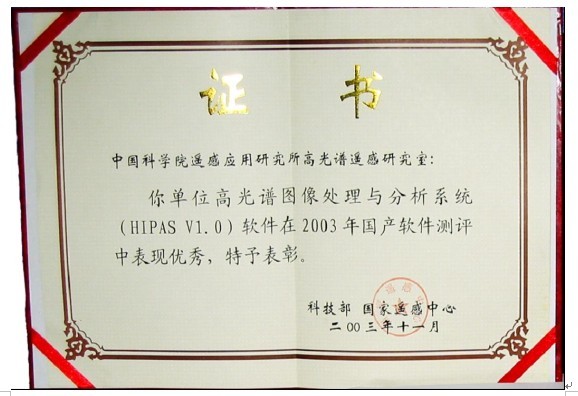 证 书
中国科学院遥感应用研究所高光谱遥感研究室：
你单位高光谱图像处理与分析系统
（HIPAS V1.0）软件在2003年国产软件测评
中表现优秀，特予表彰。
科技部 国家遥感中心
二00三年十一月